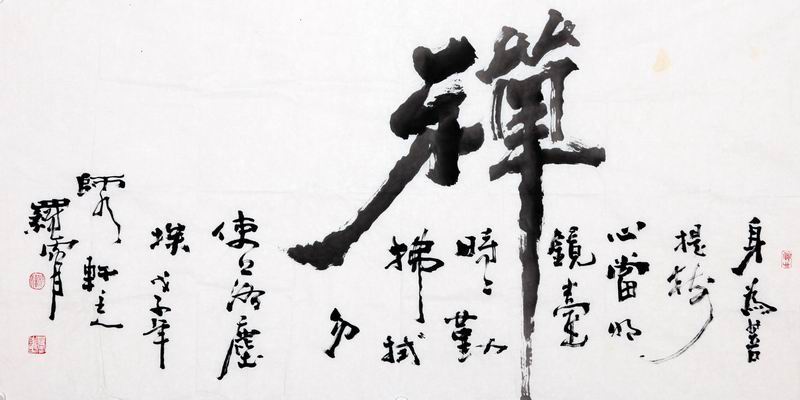 禪
身為菩
提樹
心當明
鏡臺
時々勤
拂拭
勿
使落塵
埃 戊子年
軒主人
羅月